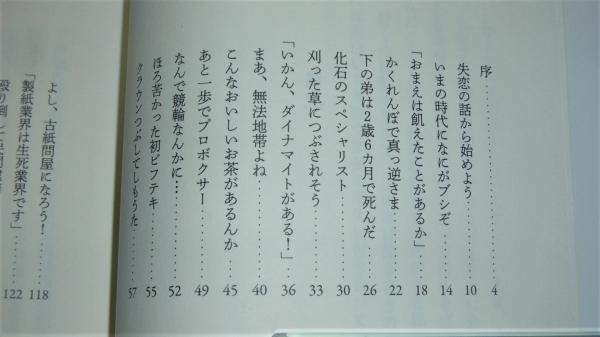 序……… 4
失恋の話から始めよう……… 10
いまの時代になにがブシぞ……… 14
「おまえは飢えたことがあるか」……… 18
かくれんぼで真っ逆さま……… 22
下の弟は2歳6カ月で死んだ……… 26
化石のスペシャリスト……… 30
刈った草につぶされそう……… 33
「いかん、ダイナマイトがある！」……… 36
まあ、無法地帯よね……… 40
こんなおいしいお茶があるんか……… 45
あと一歩でプロボクサー……… 49
なんで競輪なんかに………… 52
ほろ苦かった初ビフテキ……… 55
クラウンつぶしてしもうた……… 57
よし、古紙問屋になろう！……… 118
「製紙業界は生死業界です」……… 122